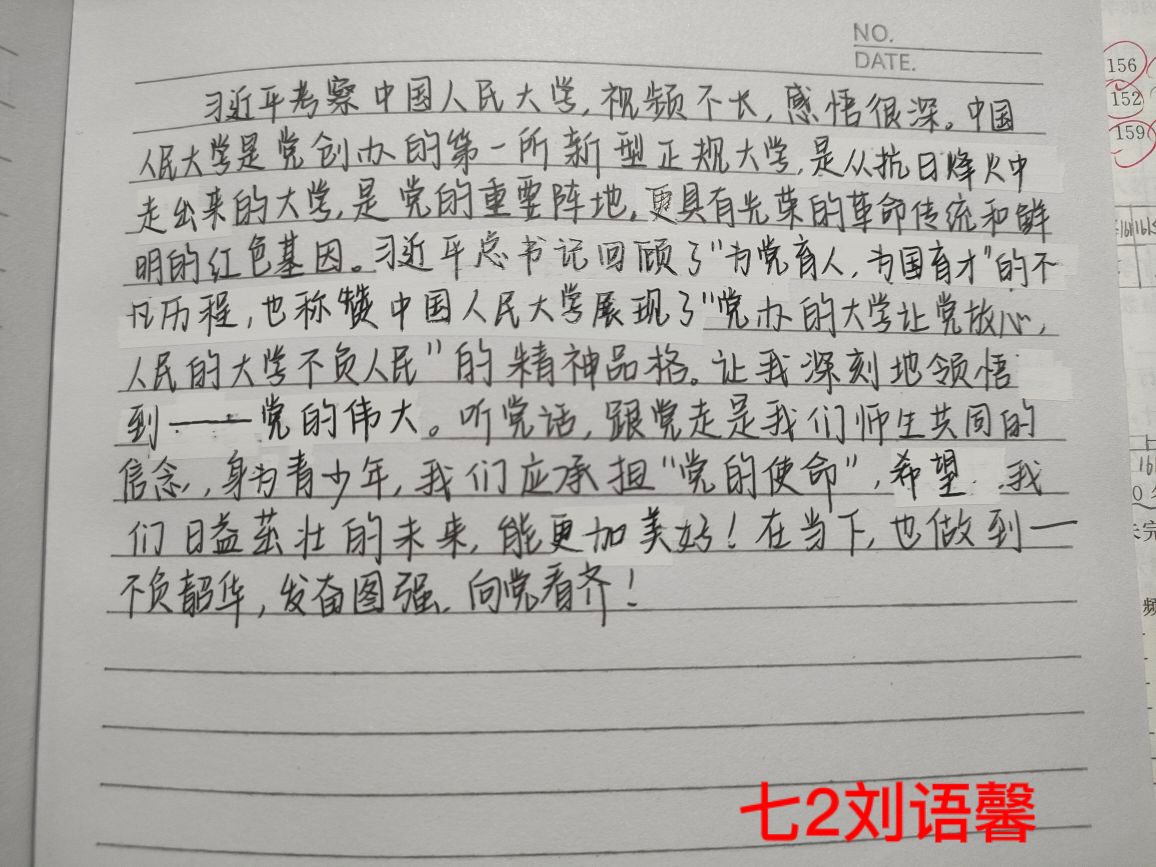 NO.
DATE.
习近平考察中国人民大学,视频不长,感悟很深。中国
人民大学是党创办的第一所新型正规大学,是从抗日烽火中
走出来的大学,是党的重要阵地,更具有光荣的革命传统和鲜
明的红色基因。习近平总书记回顾了"为党育人,为国育才"的不
凡历程,也称赞中国人民大学展现了"党办的大学让党放心,
人民的大学不负人民"的精神品格。让我深刻地领悟
到——党的伟大。听党话,跟党走是我们师生共同的
信念,身为青少年,我们应承担"党的使命",希望,我
们日益茁壮的未来,能更加美好!在当下,也做到一
不负韶华,发奋图强.向党看齐!
156
152
159
七2刘语馨